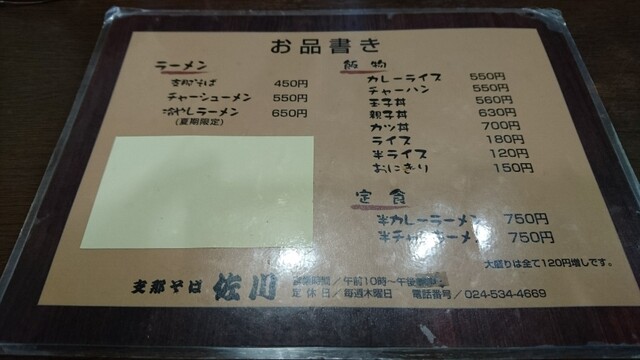 お品書き
ラーメン
支那そば 450円
チャーシューメン 550円
冷やしラーメン 650円
(夏期限定)
飯物
カレーライス 550円
チャーハン 550円
玉子丼 560円
親子丼 630円
カツ丼 700円
ライス 180円
半ライス 120円
おにぎり 150円
定食
半カレーラーメン 750円
半チャーラーメン 750円
大盛りは全て120円増しです。
支那そば 佐川
営業時間/午前10時〜午後
定休日/毎週木曜日 電話番号/024-534-4669